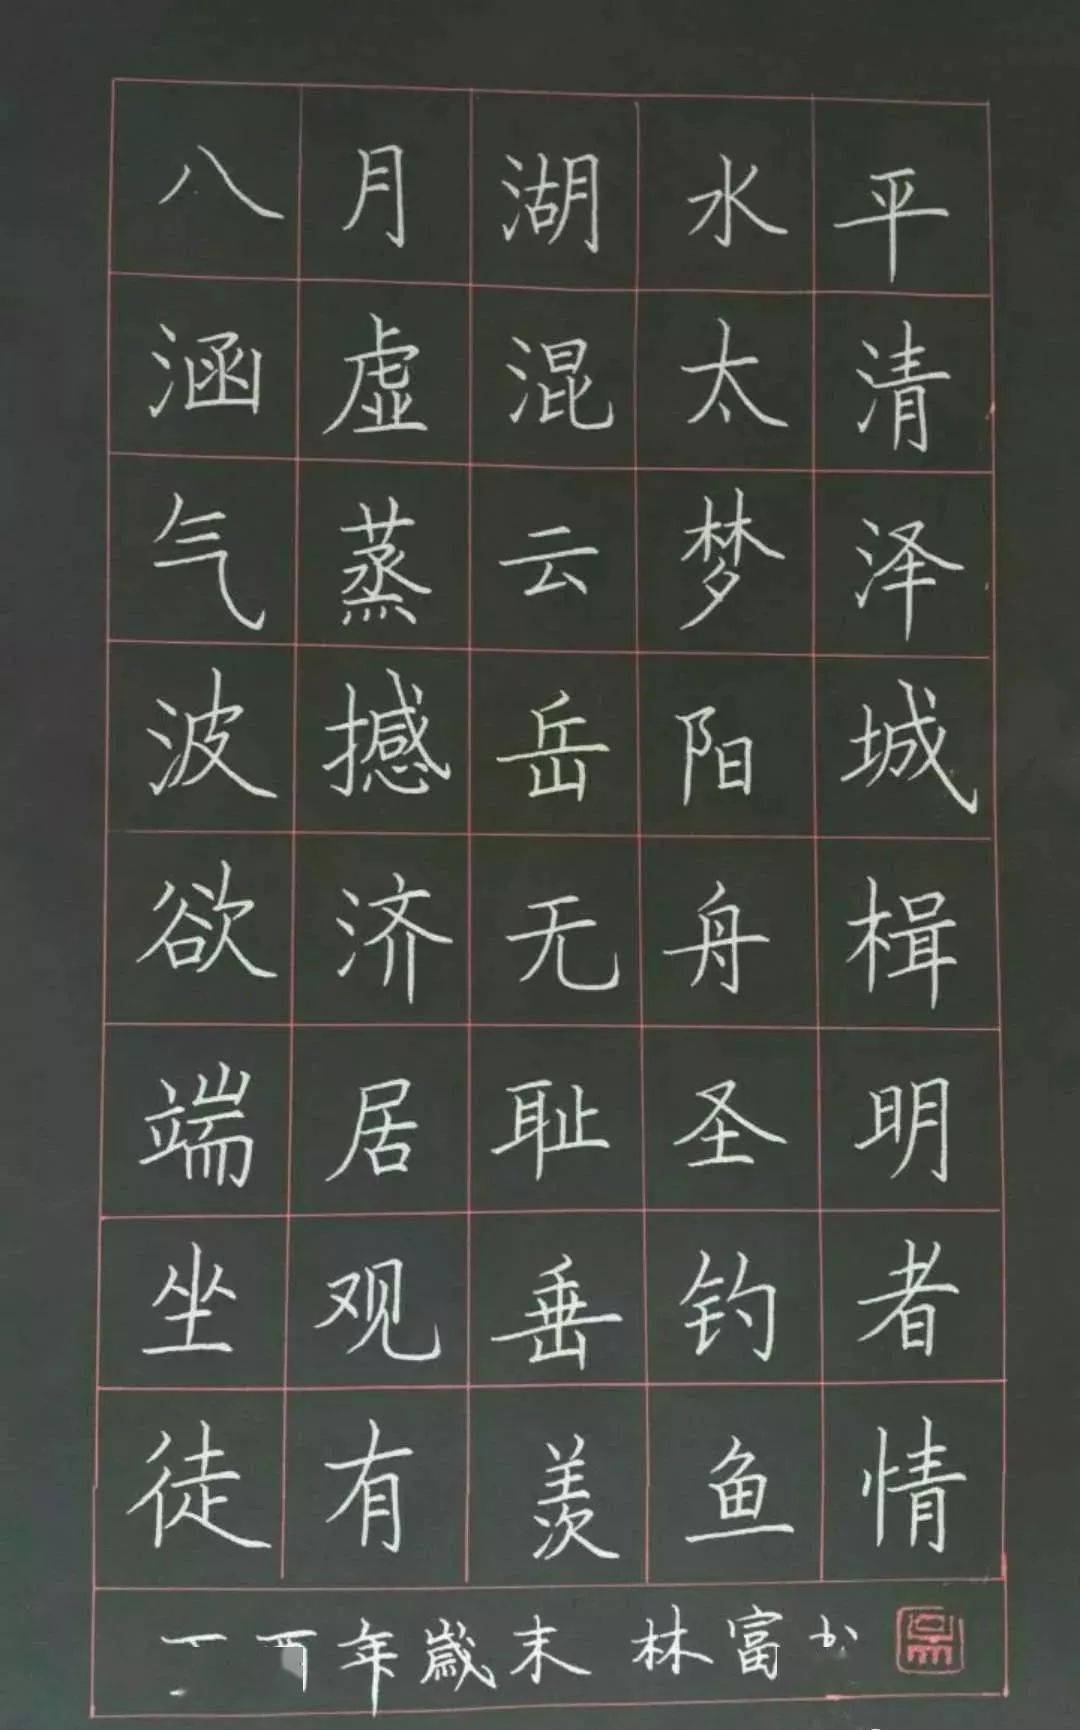 八月湖水平
涵虚混太清
气蒸云梦泽
波撼岳阳城
欲济无舟楫
端居耻圣明
坐观垂钓者
徒有羡鱼情
年歲末 林富书